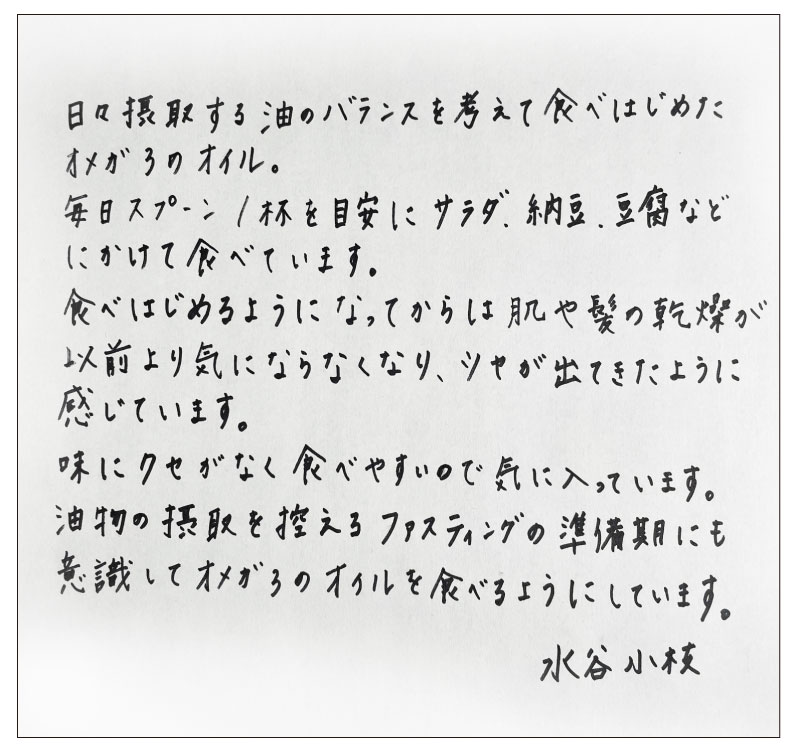 日々摂取する油のバランスを考えて食べはじめた
オメガ3のオイル。
毎日スプーン1杯を目安にサラダ、納豆、豆腐など
にかけて食べています。
食べはじめるようになってからは肌や髪の乾燥が
以前より気にならなくなり、ツヤが出てきたように
感じています。
味にクセがなく食べやすいので気に入っています。
油物の摂取を控えるファスティングの準備期にも
意識してオメガ3のオイルを食べるようにしています。
水谷小枝